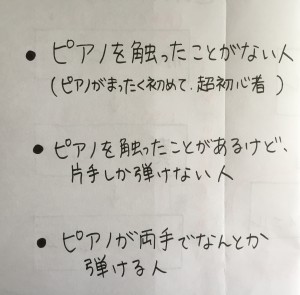 ● ピアノを触ったことがない人
(ピアノがまったく初めて．超初心者)
● ピアノを触ったことがあるけど、
片手しか弾けない人
● ピアノが両手でなんとか
弾ける人